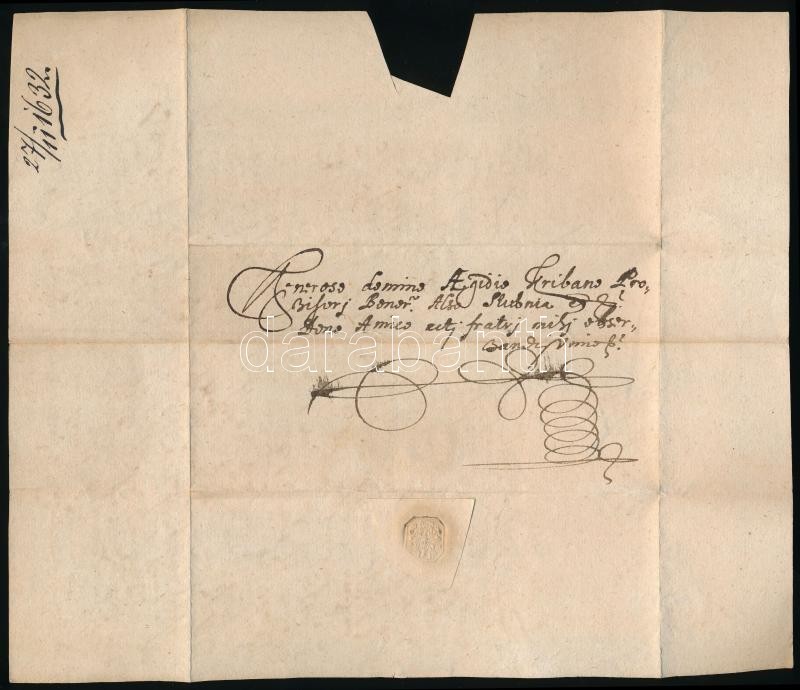 27/11 1632.
Generoso domino Ægidio Kribano Pro-
visorj Bener. Also Slubnia
Dono Amico utj fratrj mihj obser-
vandissimo
darabanth